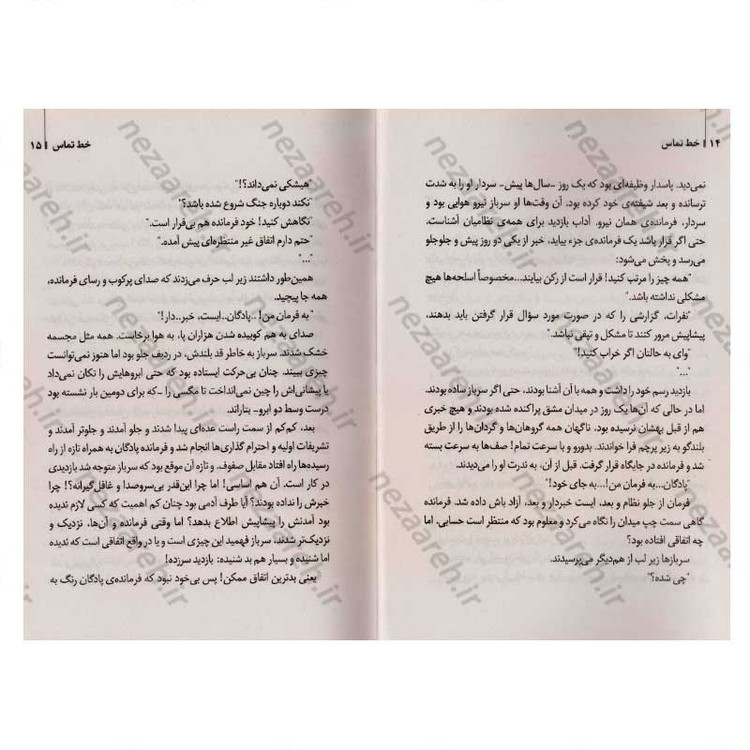 ۱۴ | خط تماس
نمی‌دید. پاسدار وظیفه‌ای بود که یک روز -سال‌ها پیش- سردار او را به شدت
ترسانده و بعد شیفته‌ی خود کرده بود. آن وقت‌ها او سرباز نیرو هوایی بود و
سردار، فرمانده‌ی همان نیرو. آداب بازدید برای همه‌ی نظامیان آشناست.
حتی اگر قرار باشد یک فرمانده‌ی جزء بیاید، خبر از یکی دو روز پیش و جلوجلو
می‌رسد و پخش می‌شود:
"همه چیز را مرتب کنید! قرار است از رکن بیایند...مخصوصاً اسلحه‌ها هیچ
مشکلی نداشته باشد."
"نفرات، گزارشی را که در صورت مورد سؤال قرار گرفتن باید بدهند،
پیشاپیش مرور کنند تا مشکل و تپقی نباشد."
"وای به حالتان اگر خراب کنید!"
"..."
بازدید رسم خود را داشت و همه با آن آشنا بودند، حتی اگر سرباز ساده بودند.
اما در حالی که آن‌ها یک روز در میدان مشق پراکنده شده بودند و هیچ خبری
هم از قبل بهشان نرسیده بود، ناگهان همه گروهان‌ها و گردان‌ها را از طریق
بلندگو به زیر پرچم فرا خواندند. بدورو و با سرعت تمام! صف‌ها به سرعت بسته
شد و فرمانده در جایگاه قرار گرفت. قبل از آن، به ندرت او را می‌دیدند.
"پادگان...به فرمان من!...به جای خود!"
فرمان از جلو نظام و بعد، ایست خبردار و بعد، آزاد باش داده شد. فرمانده
گاهی سمت چپ میدان را نگاه می‌کرد و معلوم بود که منتظر است حسابی. اما
چه اتفاقی افتاده بود؟
سربازها زیر لب از هم‌دیگر می‌پرسیدند.
"چی شده؟"
خط تماس | ۱۵
"هیشکی نمی‌داند؟!"
"نکند دوباره جنگ شروع شده باشد؟"
"نگاهش کنید! خود فرمانده هم بی‌قرار است."
"حتم دارم اتفاق غیر منتظره‌ای پیش آمده."
"..."
همین‌طور داشتند زیر لب حرف می‌زدند که صدای پرکوب و رسای فرمانده،
همه جا پیچید.
"به فرمان من! ..پادگان..ایست، خبر..دار!"
صدای به هم کوبیده شدن هزاران پا، به هوا برخاست. همه مثل مجسمه
خشک شدند. سرباز به خاطر قد بلندش، در ردیف جلو بود اما هنوز نمی‌توانست
چیزی ببیند. چنان بی‌حرکت ایستاده بود که حتی ابروهایش را تکان نمی‌داد
یا پیشانی‌اش را چین نمی‌انداخت تا مگسی را -که برای دومین بار نشسته بود
درست وسط دو ابرو- بتاراند.
بعد، کم‌کم از سمت راست عده‌ای پیدا شدند و جلو و جلوتر آمدند و
تشریفات اولیه و احترام گذاری‌ها انجام شد و فرمانده پادگان به همراه تازه از راه
رسیده‌ها راه افتاد مقابل صفوف. و تازه آن موقع بود که سرباز متوجه شد بازدیدی
در کار است. آن هم اساسی! اما چرا این‌قدر بی‌سروصدا و غافل‌گیرانه؟! چرا
خبرش را نداده بودند؟ آیا طرف آدمی بود چنان کم اهمیت که کسی لازم ندیده
بود آمدنش را پیشاپیش اطلاع بدهد؟ اما وقتی فرمانده و آن‌ها، نزدیک و
نزدیک‌تر شدند، سرباز فهمید این چیزی است و یا در واقع اتفاقی است که ندیده
اما شنیده و بسیار هم بد شنیده: بازدید سرزده!
یعنی بدترین اتفاق ممکن! پس بی‌خود نبود که فرمانده‌ی پادگان رنگ به
nezaareh.ir
nezaareh.ir
nezaareh.ir
nezaareh.ir
nezaareh.ir
nezaareh.ir